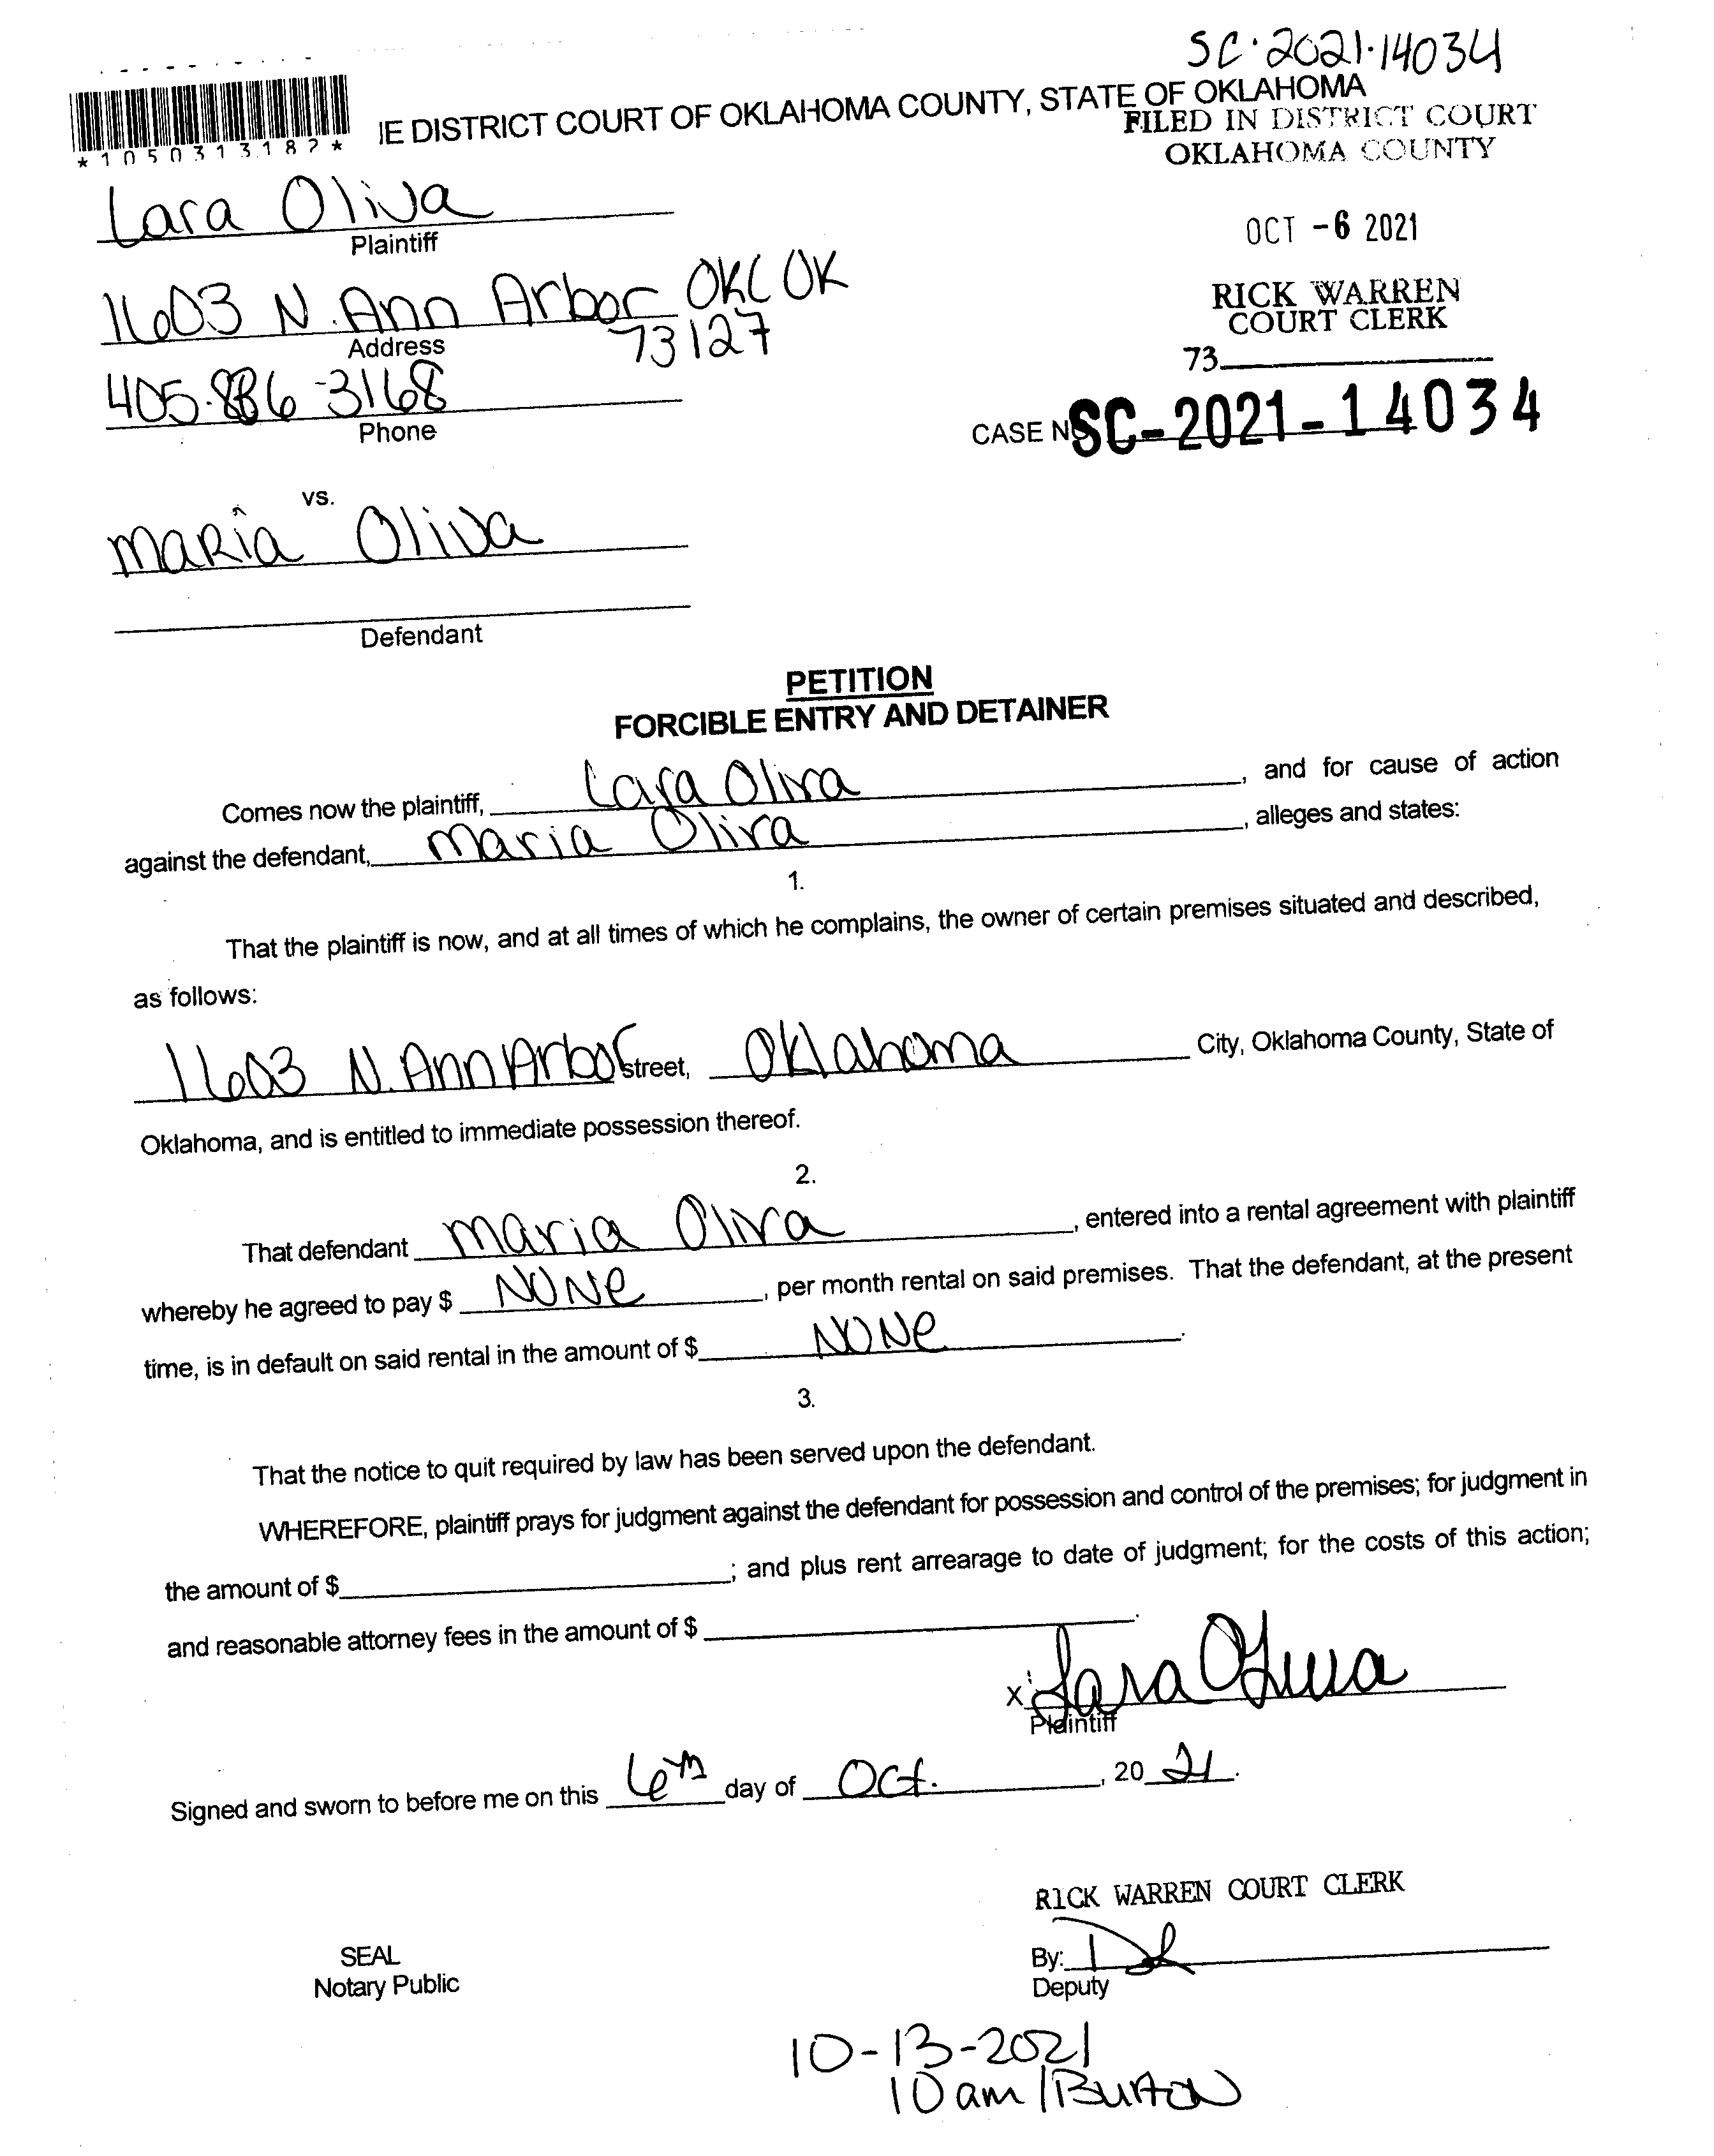 SC·2021·14034
IE DISTRICT COURT OF OKLAHOMA COUNTY, STATE OF OKLAHOMA
FILED IN DISTRICT COURT
OKLAHOMA COUNTY
*1050313182*
Lara Oliva
Plaintiff
OCT -6 2021
1603 N. Ann Arbor OKC OK
73127
Address
RICK WARREN
COURT CLERK
73
405-886-3168
Phone
CASE NO SC-2021-14034
vs.
Maria Oliva
Defendant
PETITION
FORCIBLE ENTRY AND DETAINER
Comes now the plaintiff, Lara Oliva, and for cause of action
against the defendant, Maria Oliva, alleges and states:
1.
That the plaintiff is now, and at all times of which he complains, the owner of certain premises situated and described,
as follows:
1603 N. Ann Arbor Street, Oklahoma City, Oklahoma County, State of
Oklahoma, and is entitled to immediate possession thereof.
2.
That defendant Maria Oliva, entered into a rental agreement with plaintiff
whereby he agreed to pay $ NONe, per month rental on said premises. That the defendant, at the present
time, is in default on said rental in the amount of $ NONe.
3.
That the notice to quit required by law has been served upon the defendant.
WHEREFORE, plaintiff prays for judgment against the defendant for possession and control of the premises; for judgment in
the amount of $ ; and plus rent arrearage to date of judgment; for the costs of this action;
and reasonable attorney fees in the amount of $ .
x Lara Oliva
Plaintiff
Signed and sworn to before me on this 6th day of Oct., 20 21.
RICK WARREN COURT CLERK
SEAL
Notary Public
By:
Deputy
10-13-2021
10am/Burton